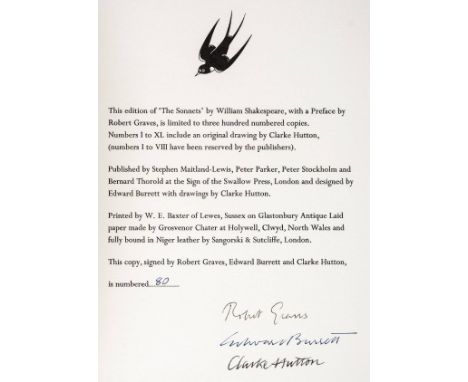 This edition of 'The Sonnets' by William Shakespeare, with a Preface by
Robert Graves, is limited to three hundred numbered copies.
Numbers I to XL include an original drawing by Clarke Hutton,
(numbers I to VIII have been reserved by the publishers).
Published by Stephen Maitland-Lewis, Peter Parker, Peter Stockholm and
Bernard Thorold at the Sign of the Swallow Press, London and designed by
Edward Burrett with drawings by Clarke Hutton.
Printed by W. E. Baxter of Lewes, Sussex on Glastonbury Antique Laid
paper made by Grosvenor Chater at Holywell, Clwyd, North Wales and
fully bound in Niger leather by Sangorski & Sutcliffe, London.
This copy, signed by Robert Graves, Edward Burrett and Clarke Hutton,
is numbered 80
Robert Graves
Edward Burrett
Clarke Hutton